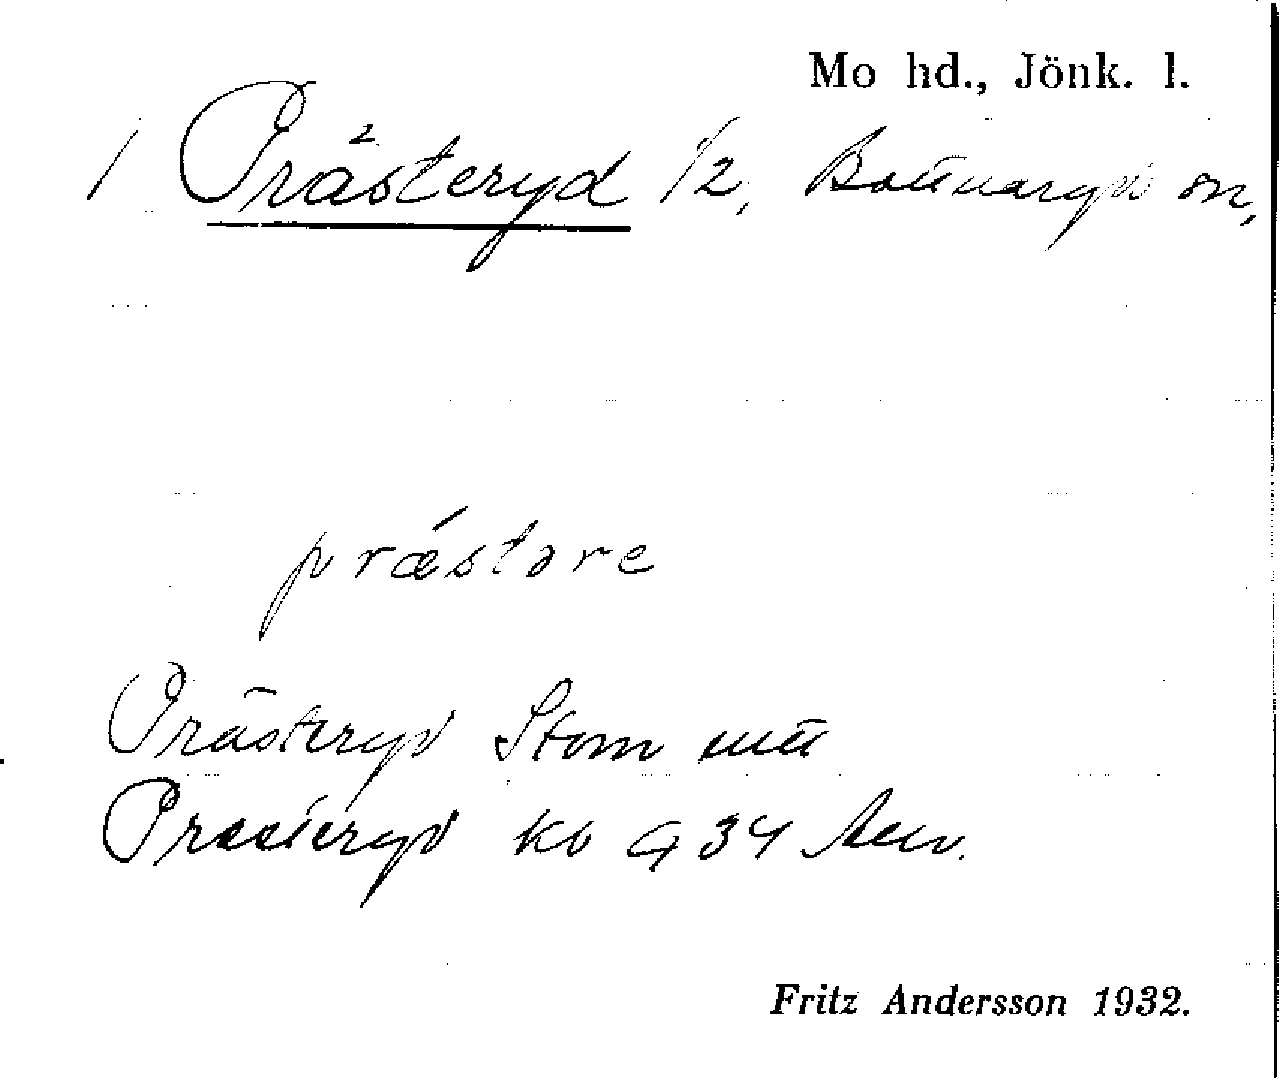 Mo hd., Jönk. l.
1 Prästeryd 1/2, Bottnaryds sn,
præstəre
Prästeryd Stom
Prästeryd kb G 34
Fritz Andersson 1932.